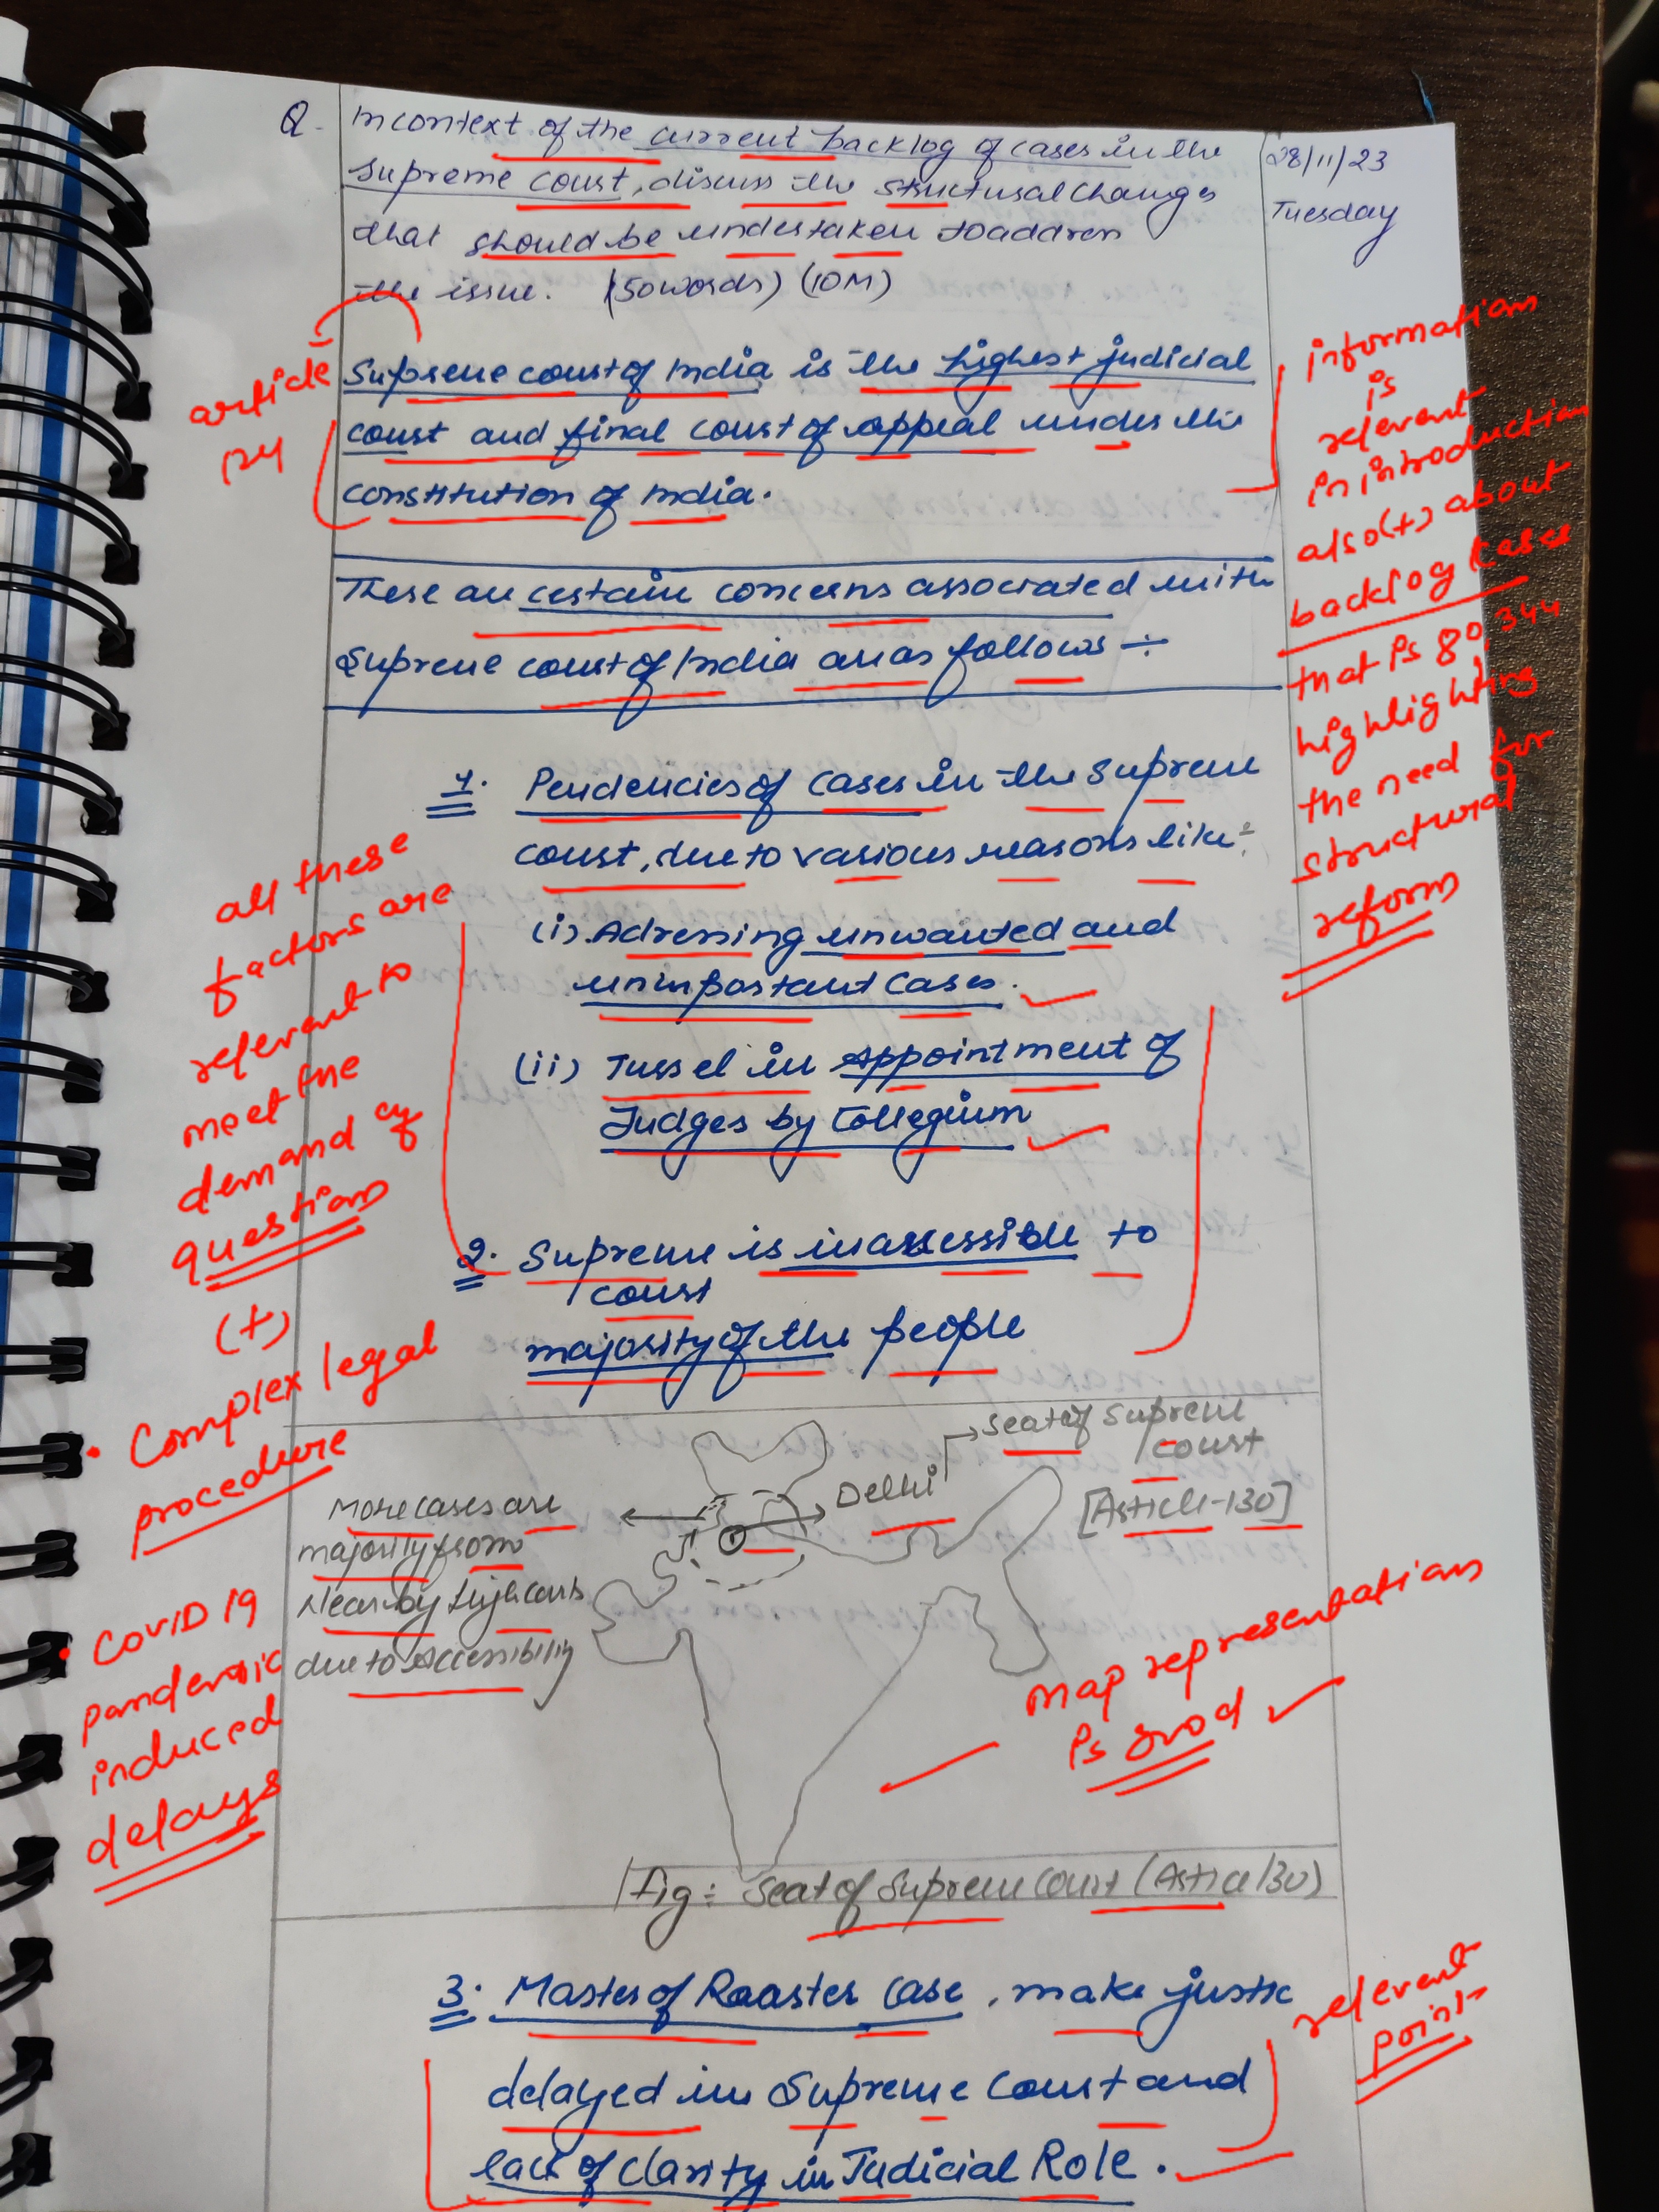 Q. In context of the current backlog of cases in the
Supreme court, discuss the structural changes
that should be undertaken to addren
the issue. (50words) (10M)
28/11/23
Tuesday
Supreme court of India is the highest judicial
court and final court of appeal under the
constitution of India.
article
124
information
is
relevent
in introduction
also (+) about
backlog cases
that is 80,344
highlighting
the need for
structural
reform
These are certain concerns associated with
Supreme court of India are as follows ÷
1. Pendencies of cases in the Supreme
court, due to various reasons like÷
(i). Adressing unwanted and
unimportant cases.
(ii) Tussel in Appointment of
Judges by Collegium
2. Supreme is inassessible to
court
majority of the people
all these
factors are
relevent to
meet the
demand of
question
(+)
• Complex legal
procedure
• COVID 19
pandemic
induced
delays
Seat of Supreme
court
[Article-130]
Delhi
More cases are
majority from
Nearby High courts
due to Accessibility
map representation
is good
Fig: Seat of Supreme court (Article 130)
3. Master of Roaster case, make justic
delayed in Supreme Court and
lack of clarity in Judicial Role.
relevent
point